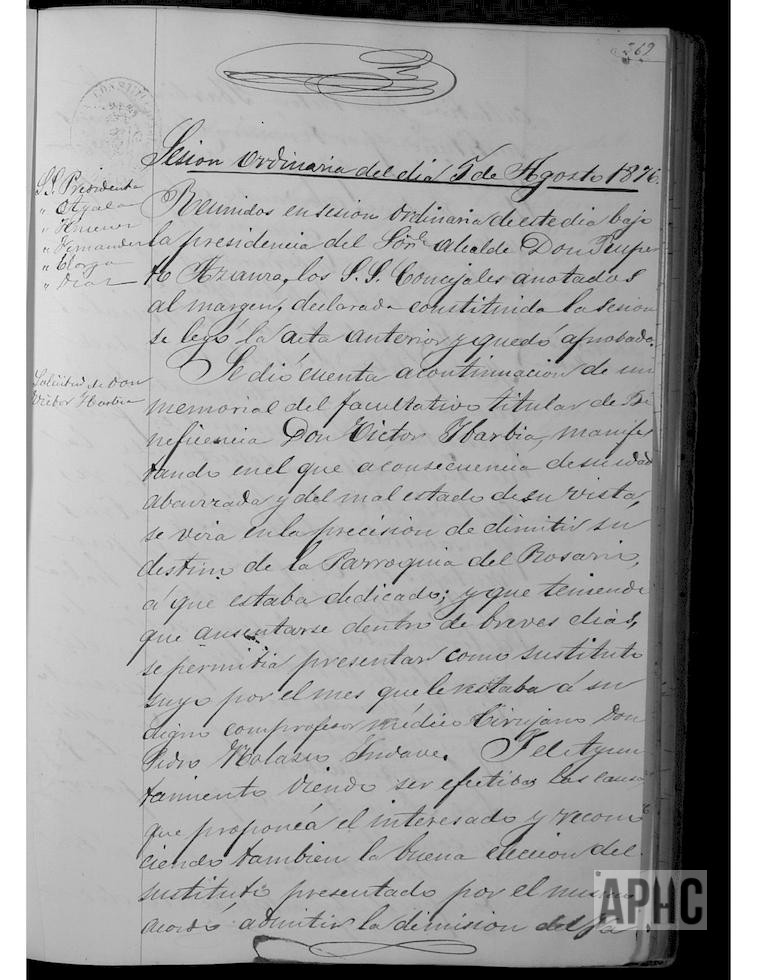 269
Sesion ordinaria del dia 5 de Agosto 1876.
S.S. Presidente
" Ayala
" Ximenez
" Hernandez
" Elorza
" Diaz
Reunidos en sesion ordinaria de este dia bajo
la presidencia del Sor. Alcalde Don Ruper
to Azcona, los S.S. Concejales anotados
al margen, declarada constituida la sesion
se leyó la acta anterior y quedó aprobada.
Solicitud de Don
Victor Ibarbia
Se dió cuenta acontinuacion de un
memorial del facultativo titular de Be
neficencia Don Victor Ibarbia, manifes
tando en el que a consecuencia de su edad
abanzada y del mal estado de su vista,
se veia en la precision de dimitir su
destino de la Parroquia del Rosario,
á que estaba dedicado; y que teniendo
que ausentarse dentro de breves dias,
se permitia presentar como sustituto
suyo por el mes que le restaba á su
digno comprofesor médico Cirujano Don
Pedro Nolasco Indave. Y el Ayun
tamiento viendo ser efectibas las causas
que proponea el interesado y recono
ciendo tambien la buena eleccion del
sustituto presentado por el mismo
acordó admitir la dimision del fa
APHC